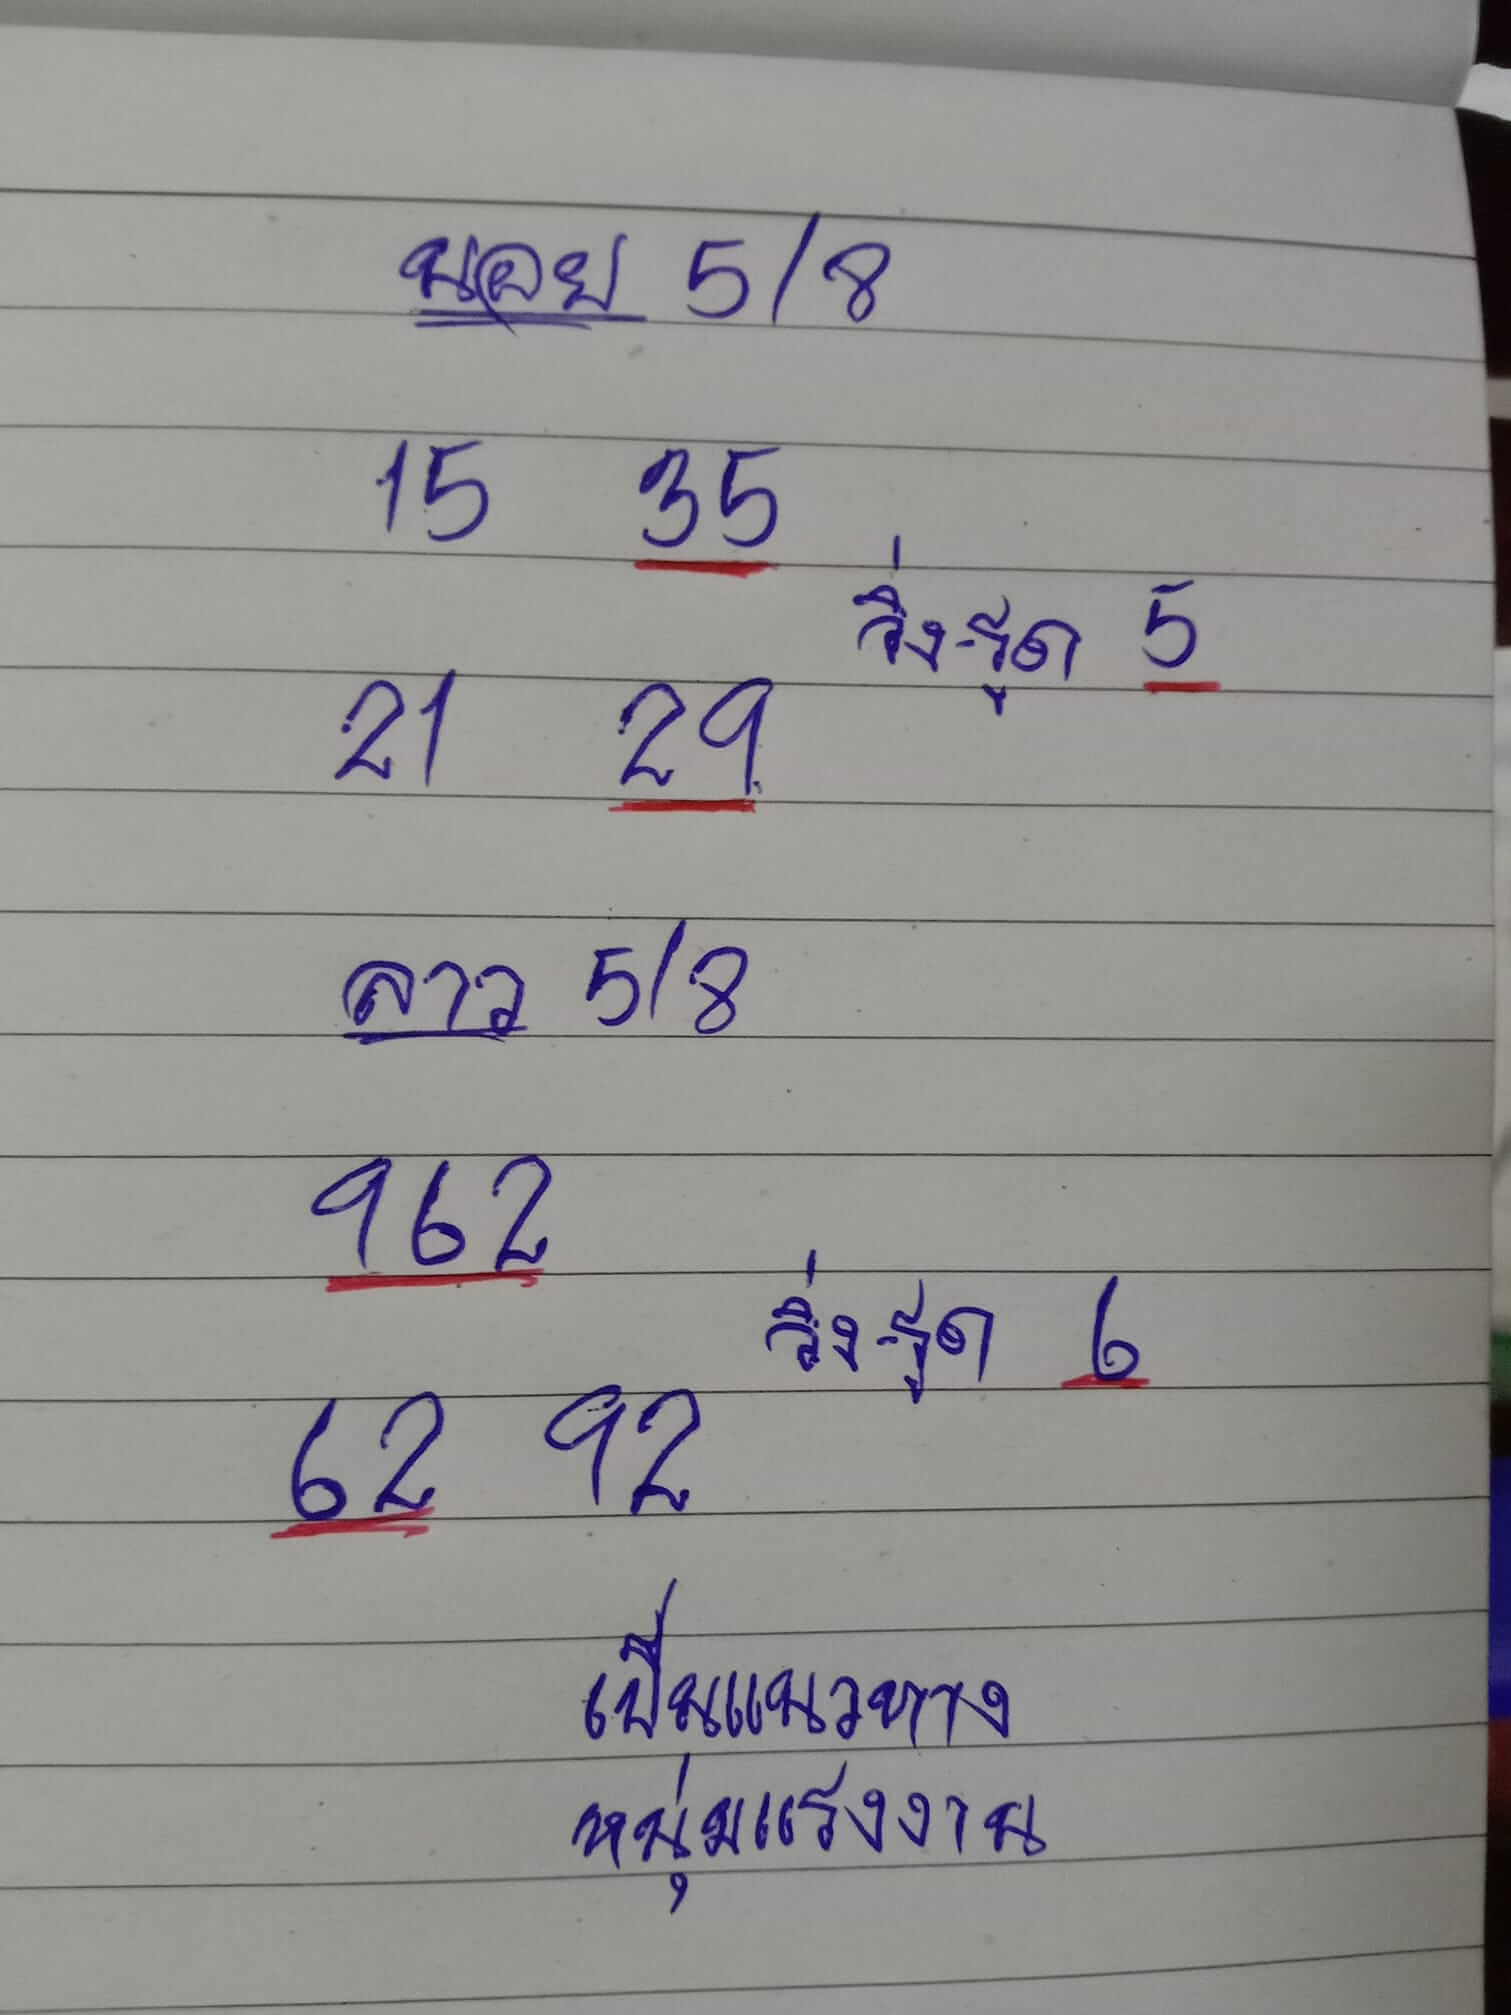 นอย 5/8
15 35
วิ่ง-รูด 5
21 29
ลาว 5/8
962
วิ่ง-รูด 6
62 92
เป็นแนวทาง
หนุ่มแรงงาน